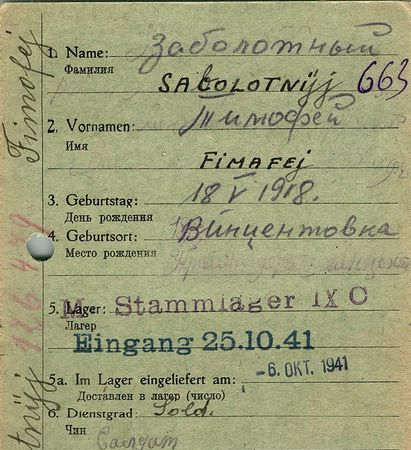 1. Name: Заболотный
Фамилия
SABOLOTNYJ 663
2. Vornamen: Тимофей
Имя
FIMAFEJ
3. Geburtstag: 18 V 1918.
День рождения
4. Geburtsort: Винцентовка
Место рождения
5. Lager: M. Stammlager IX C
Лагер
Eingang 25.10.41
5a. Im Lager eingeliefert am: -6. ОКТ. 1941
Доставлен в лагер (число)
6. Dienstgrad: Sold.
Чин Солдат
Fimofej